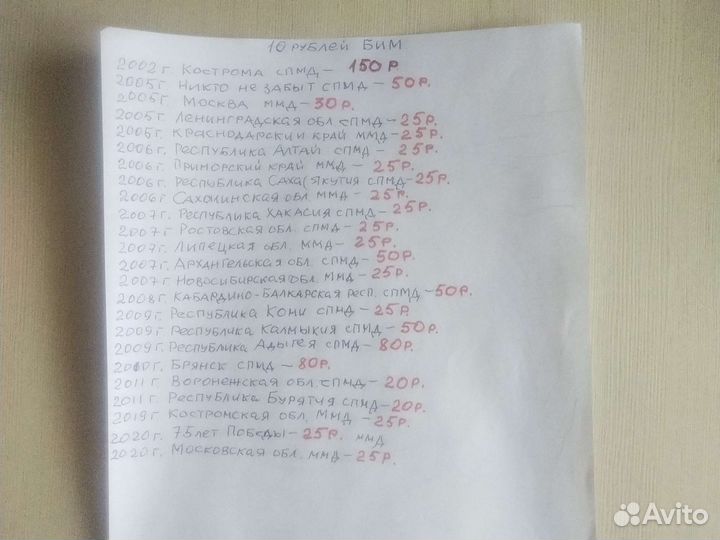 10 рублей БИМ
2002 г. Кострома спмд – 150 р.
2005 г. Никто не забыт спмд – 50 р.
2005 г. Москва ммд – 30 р.
2005 г. Ленинградская обл спмд – 25 р.
2005 г. Краснодарский край ммд – 25 р.
2006 г. Республика Алтай спмд – 25 р.
2006 г. Приморский край ммд – 25 р.
2006 г. Республика Саха (Якутия спмд – 25 р.
2006 г. Сахалинская обл ммд – 25 р.
2007 г. Республика Хакасия спмд – 25 р.
2007 г. Ростовская обл. спмд – 25 р.
2007 г. Липецкая обл. ммд – 25 р.
2007 г. Архангельская обл. спмд – 50 р.
2007 г. Новосибирская обл. ммд – 25 р.
2008 г. Кабардино-Балкарская респ. спмд – 50 р.
2009 г. Республика Коми спмд – 25 р.
2009 г. Республика Калмыкия спмд – 50 р.
2009 г. Республика Адыгея спмд – 80 р.
2010 г. Брянск спмд – 80 р.
2011 г. Воронежская обл. спмд – 20 р.
2011 г. Республика Бурятия спмд – 20 р.
2019 г. Костромская обл. ммд – 25 р.
2020 г. 75 лет Победы – 25 р. ммд
2020 г. Московская обл. ммд – 25 р.
Avito